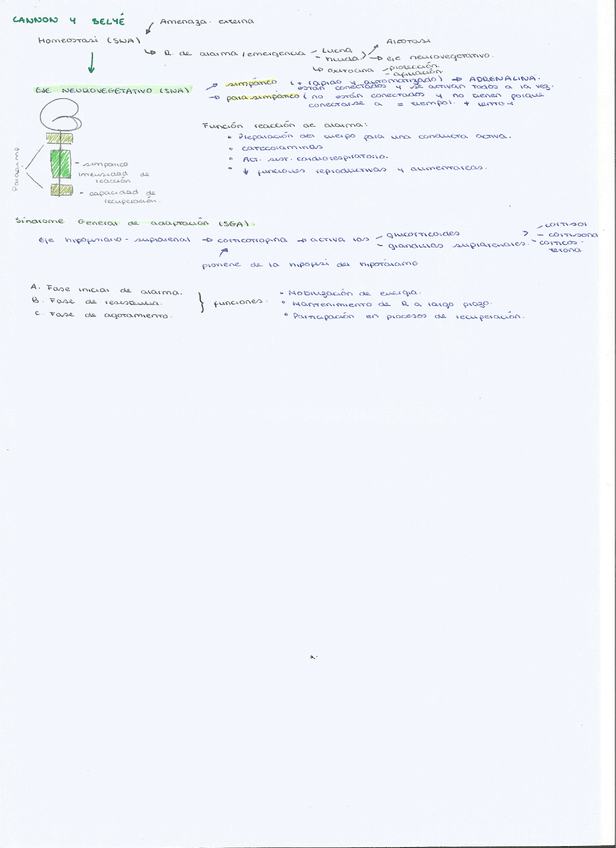 CANNON Y SELYÉ
Amenaza externa
Homeostasi (SNA)
R de alarma/emergencia - Lucha
- Huida
Alostasi
eje neurovegetativo.
oxitocina - protección
- afiliación
EJE NEUROVEGETATIVO (SNA)
simpático (+ rápido y automatizado) → ADRENALINA.
están conectados y se activan todos a la vez.
parasimpático (no están conectados y no tienen porque
conectarse a = tiempo). + lento
Parasimp
- simpático
intensidad de
reacción
- capacidad de
recuperación.
Función reacción de alarma:
• Preparación del cuerpo para una conducta activa.
• catecolaminas
• Act. sist. cardiorespiratorio.
• ↓ funciones reproductivas y alimentarias.
Síndrome General de adaptación (SGA)
eje hipofisiario - suprarrenal → corticotropina → activa las - glucorticoides
- glándulas suprarrenales
- cortisol
- cortisona
- corticos-
terona
proviene de la hipofisi del hipotálamo
A. Fase inicial de alarma.
B. Fase de resistencia.
C. Fase de agotamiento.
} funciones:
• Mobilización de energía.
• Mantenimiento de R a largo plazo.
• Participación en procesos de recuperación.